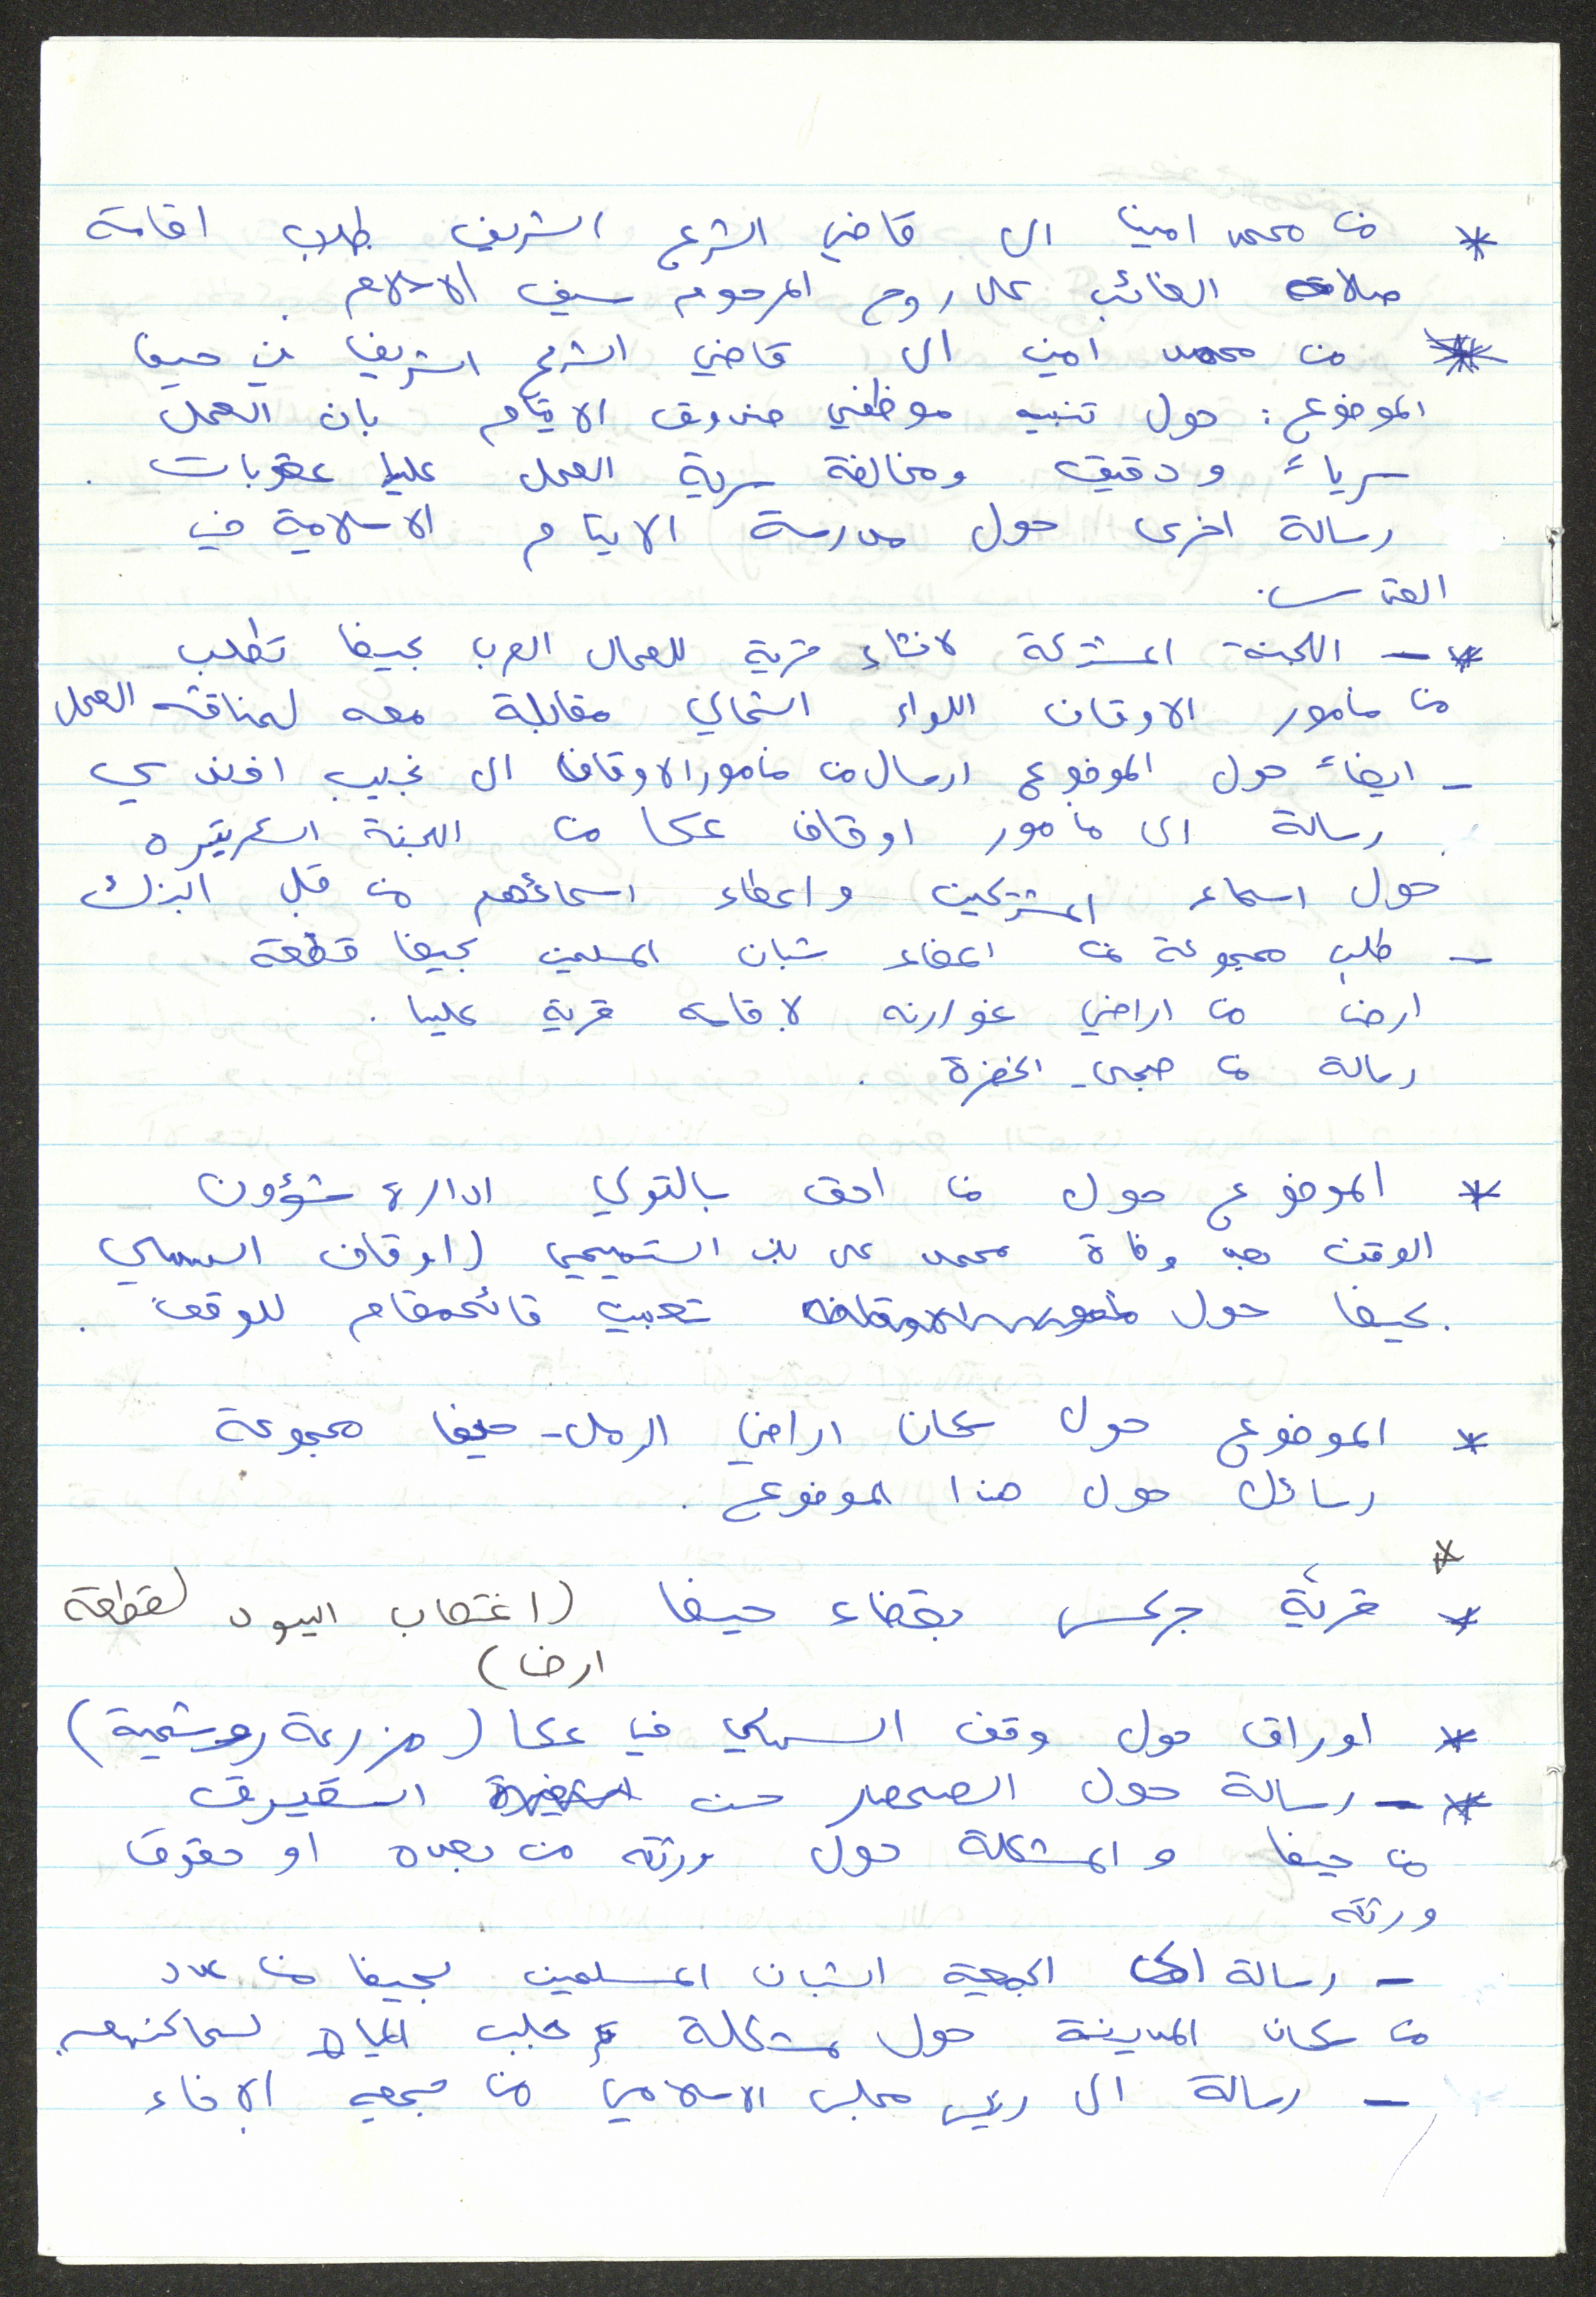 * من محمد امين الى قاضي الشرع الشريف طلب اقامة
صلاة الغائب على روح المرحوم سيف الاسلام .
* من محمد امين الى قاضي الشرع الشريف في حيفا
الموضوع : حول تنبيه موظفي صندوق الايتام بان العمل
سرياً ودقيق ومخالفة سرية العمل عليها عقوبات .
رسالة اخرى حول مدرسة الايتام الاسلامية في
القدس .
* - اللجنة المشتركة لانشاء قرية للعمال العرب بحيفا تطلب
من مامور الاوقاف اللواء الشمالي مقابلة معه لمناقشه العمل
- ايضاً حول الموضوع ارسال من مامور الاوقاف الى نجيب افندي
رسالة الى مامور اوقاف عكا من اللجنة
حول اسماء المشتركين واعطاء اسمائهم من قبل
- طلب مجموعة من اعضاء شبان المسلمين بحيفا قطعة
ارض من اراضي غوارنه لاقامه قرية عليها .
رسالة من صبحي الخضرة .
* الموضوع حول من احق بالتولي ادارة شؤون
الوقف بعد وفاة محمد علي بك التميمي ( اوقاف السهلي
بحيفا حول تعيين قائممقام للوقف .
* الموضوع حول سكان اراضي الرمل - حيفا مجموعة
رسائل حول هذا الموضوع .
*
* قرية جركس بقضاء حيفا ( اغتصاب اليهود لقطعة
ارض )
* اوراق حول وقف السهلي في عكا ( مزرعة روشمية )
* - رسالة حول حسن
من حيفا والمشكلة حول ورثته من بعده او حقوق
ورثته
- رسالة الى الجمعية الشبان المسلمين بحيفا من عدد
من سكان المدينة حول مشكلة جلب المياه لسماكنهم
- رسالة الى رئيس مجلس الاسلامي من جمعيه الاخاء